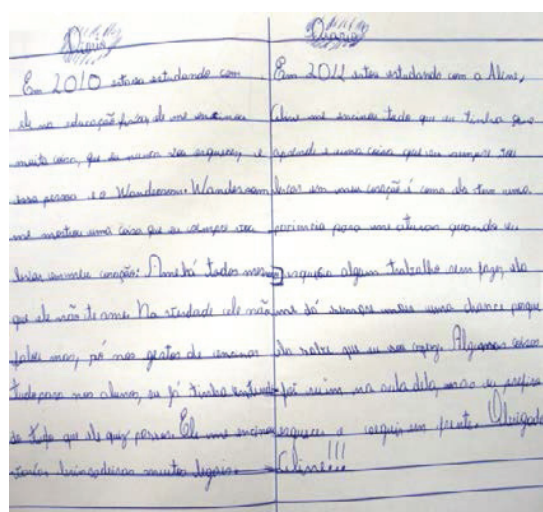 Diário
Em 2010 estava estudando com
ele na educação física, ele me ensinou
muita coisa, que eu nunca vou esquecer, e
essa pessoa é o Wanderson. Wanderson
me mostrou uma coisa que eu sempre vou
levar em meu coração: Ame há todos mesmo
que ele não te ame. Na verdade ele não
falou mas, só nos gestos de ensinar
tudo para nos alunos, eu já tinha entendi-
do tudo que ele quiz passar. Ele me ensinou
várias brincadeiras muitos legais.
Diário
Em 2011 estou estudando com a Aline,
Aline me ensinou tudo que eu tinha que
aprende e uma coisa que eu sempre vou
levar em meu coração é como ela teve uma
paciencia para me aturar quando eu
esquecia algum trabalho sem fazer, ela
me dá sempre mais uma chance porque
ela sabe que eu sou capaz. Algumas coisas
foi ruim na aula dela, mas eu prefiro
esquecer e seguir em frente. Obrigado
Aline!!!